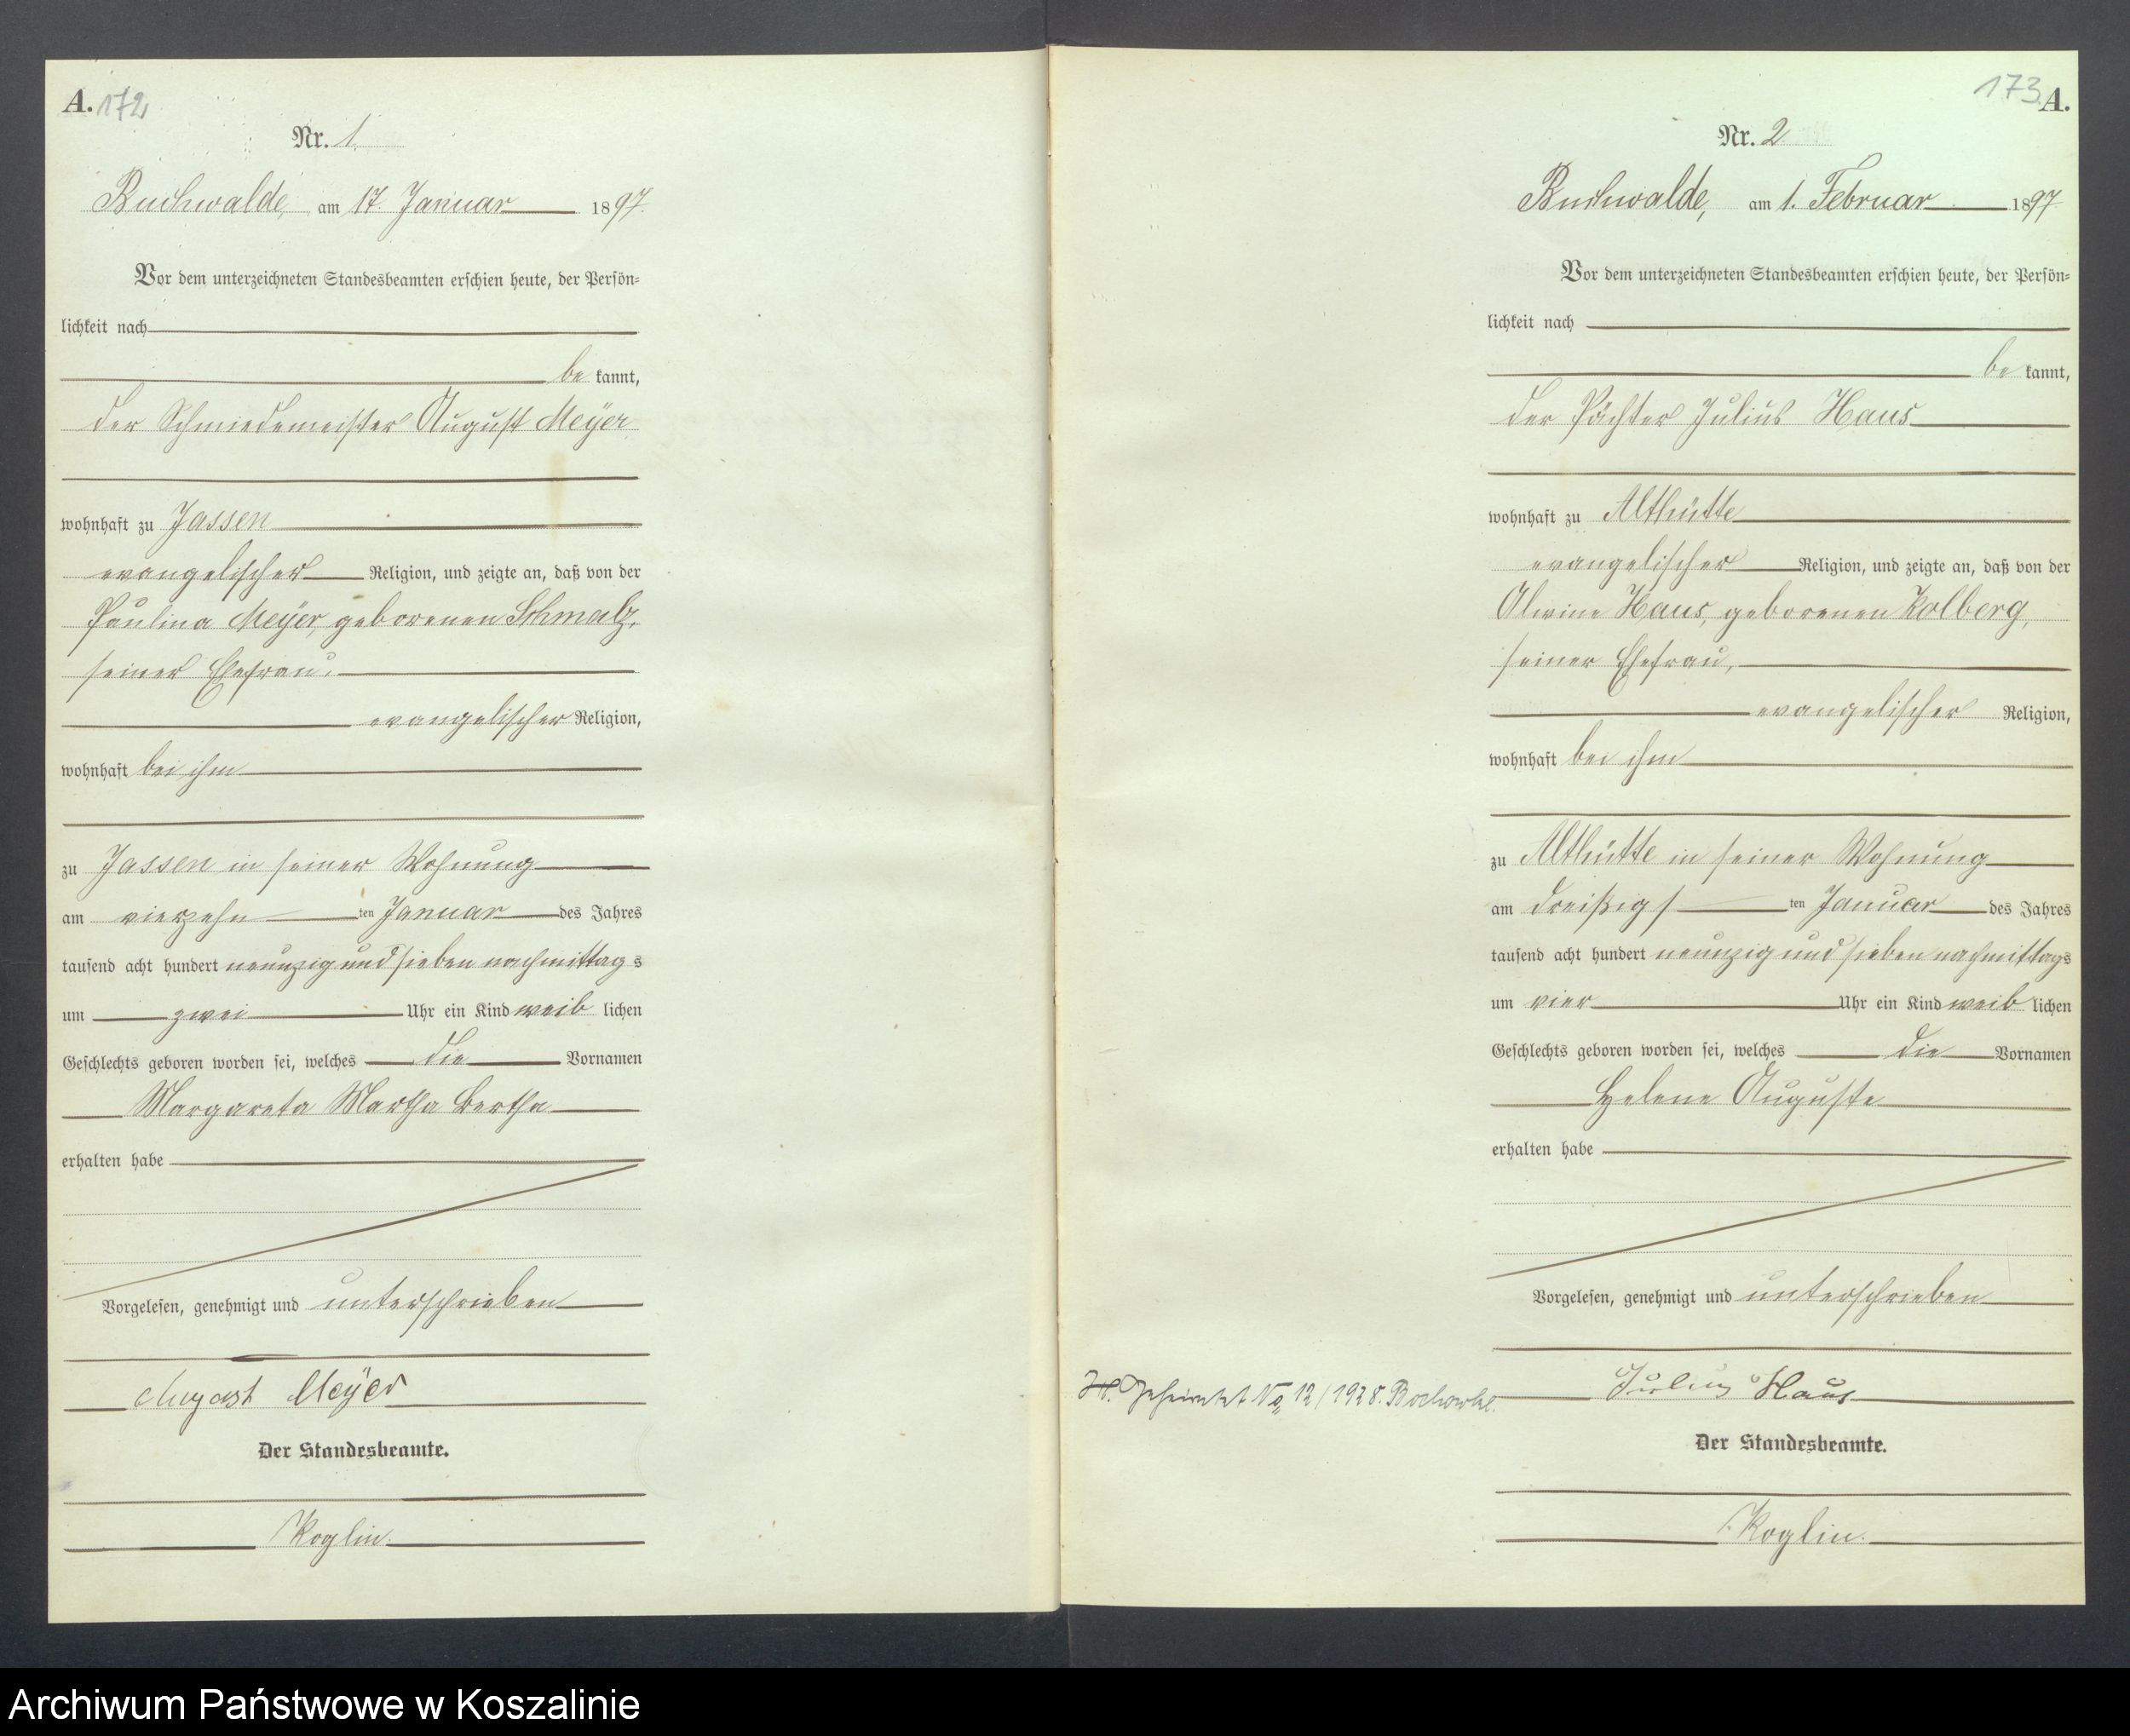 A. 172
Nr. 1.
Buchwalde, am 17. Januar 1897.
Vor dem unterzeichneten Standesbeamten erschien heute, der Persön-
lichkeit nach
be kannt,
der Schmiedemeister August Meÿer
wohnhaft zu Jassen
evangelischer Religion, und zeigte an, daß von der
Paulina Meÿer, geborenen Schmalz,
seiner Ehefrau,
evangelischer Religion,
wohnhaft bei ihm
zu Jassen in seiner Wohnung
am vierzehn ten Januar des Jahres
tausend acht hundert neunzig und sieben nachmittag s
um zwei Uhr ein Kind weib lichen
Geschlechts geboren worden sei, welches die Vornamen
Margareta Martha Bertha
erhalten habe
Vorgelesen, genehmigt und unterschrieben
August Meÿer
Der Standesbeamte.
Koglin.
173 A.
Nr. 2
Buchwalde, am 1. Februar 1897
Vor dem unterzeichneten Standesbeamten erschien heute, der Persön-
lichkeit nach
be kannt,
der Pächter Julius Haus
wohnhaft zu Althütte
evangelischer Religion, und zeigte an, daß von der
Alwine Haus, geborenen Kolberg,
seiner Ehefrau,
evangelischer Religion,
wohnhaft bei ihm
zu Althütte in seiner Wohnung
am dreißigs ten Januar des Jahres
tausend acht hundert neunzig und sieben nachmittags
um vier Uhr ein Kind weib lichen
Geschlechts geboren worden sei, welches die Vornamen
Helene Auguste
erhalten habe
Vorgelesen, genehmigt und unterschrieben
Julius Haus
H. Geheiratet No 12/1928.
Der Standesbeamte.
Koglin.
Archiwum Państwowe w Koszalinie